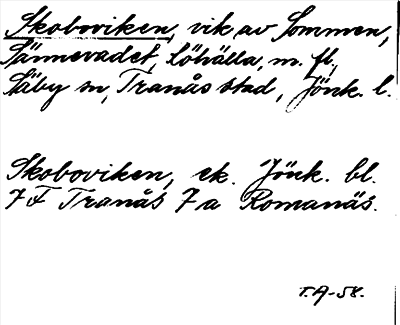 Skoboviken, vik av Sommen,
Sännevadet, Löhälla, m. fl.,
Säby sn, Tranås stad, Jönk. l.
Skoboviken, ek. Jönk. bl.
7 F Tranås 7 a Romanäs.
T.A-58.